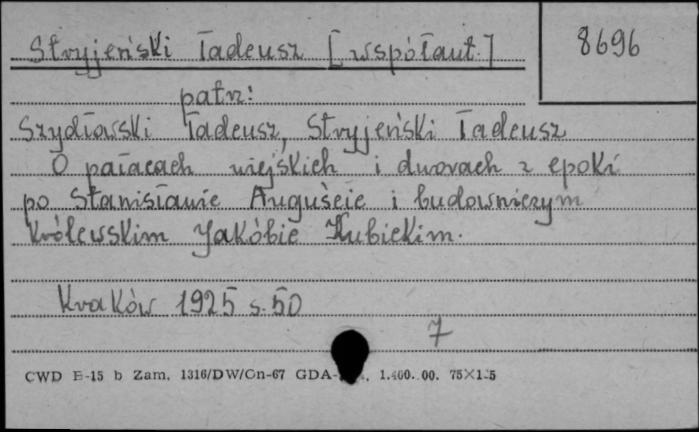 Stryjeński Tadeusz [współaut.]
8696
patrz:
Szydłowski Tadeusz, Stryjeński Tadeusz
O pałacach wiejskich i dworach z epoki
po Stanisławie Auguście i budowniczym
królewskim Jakóbie Kubickim.
Kraków 1925 s. 50
7
CWD E-15 b Zam. 1316/DW/On-67 GDA- 1.400.00. 75×125